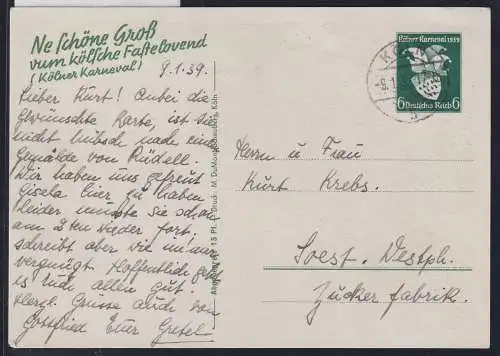 Ne schöne Groß
vum kölsche Fastelovend
(Kölner Karneval)
9.1.39.
Lieber Kurt! Anbei die
gewünschte Karte, ist sie
nicht hübsch nach einem
Gemälde von Rüdell.
Wir haben uns gefreut
Gisela hier zu haben
leider musste sie schon
am 2ten wieder fort.
schreibt aber wie immer
vergnügt. Hoffentlich geht
es Euch allen gut.
Herzl. Grüsse auch von
Gottfried Eure Gretel.
Druck: M. DuMont Schauberg, Köln
Kölner Karneval 1939
6 Deutsches Reich 6
Herrn u Frau
Kurt Krebs.
Soest. Westph.
Zuckerfabrik.